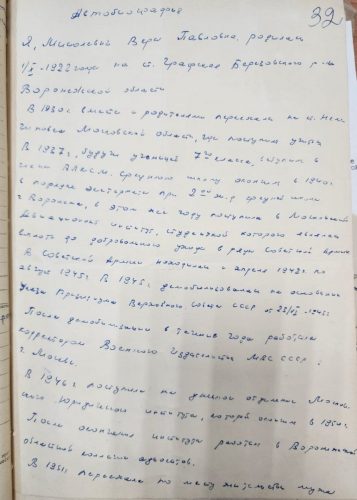 32
Автобиография
Я, Вера Павловна, родилась
1/X - 1922 года на ст. Графская Березовского р-на
Воронежской области
В 1930г. вместе с родителями переехала на ст. Нем-
чиновка Московской области, где поступила учиться
В 1937г., будучи ученицей 7го класса, вступила в
члены ВЛКСМ. Среднюю школу окончила в 1940г.
в порядке экстерната при 2ой ж.д. средней школе
г. Воронежа, в этом же году поступила в Московский
Авиационный институт, студенткой которого являлась
вплоть до добровольного ухода в ряды Советской Армии
В Советской Армии находилась с апреля 1942г. по
август 1945г. В 1945г. демобилизовалась на основании
Указа Президиума Верховного Совета СССР от 1945г.
После демобилизации в течение года работала
корректором Военного Издательства МВС СССР
г. Москвы.
В 1946г. поступила на дневное отделение Москов-
ского юридического института, который окончила в 1950г.
После окончания института работала в Воронежской
областной коллегии адвокатов.
В 1951г. переехала по месту жительства мужа